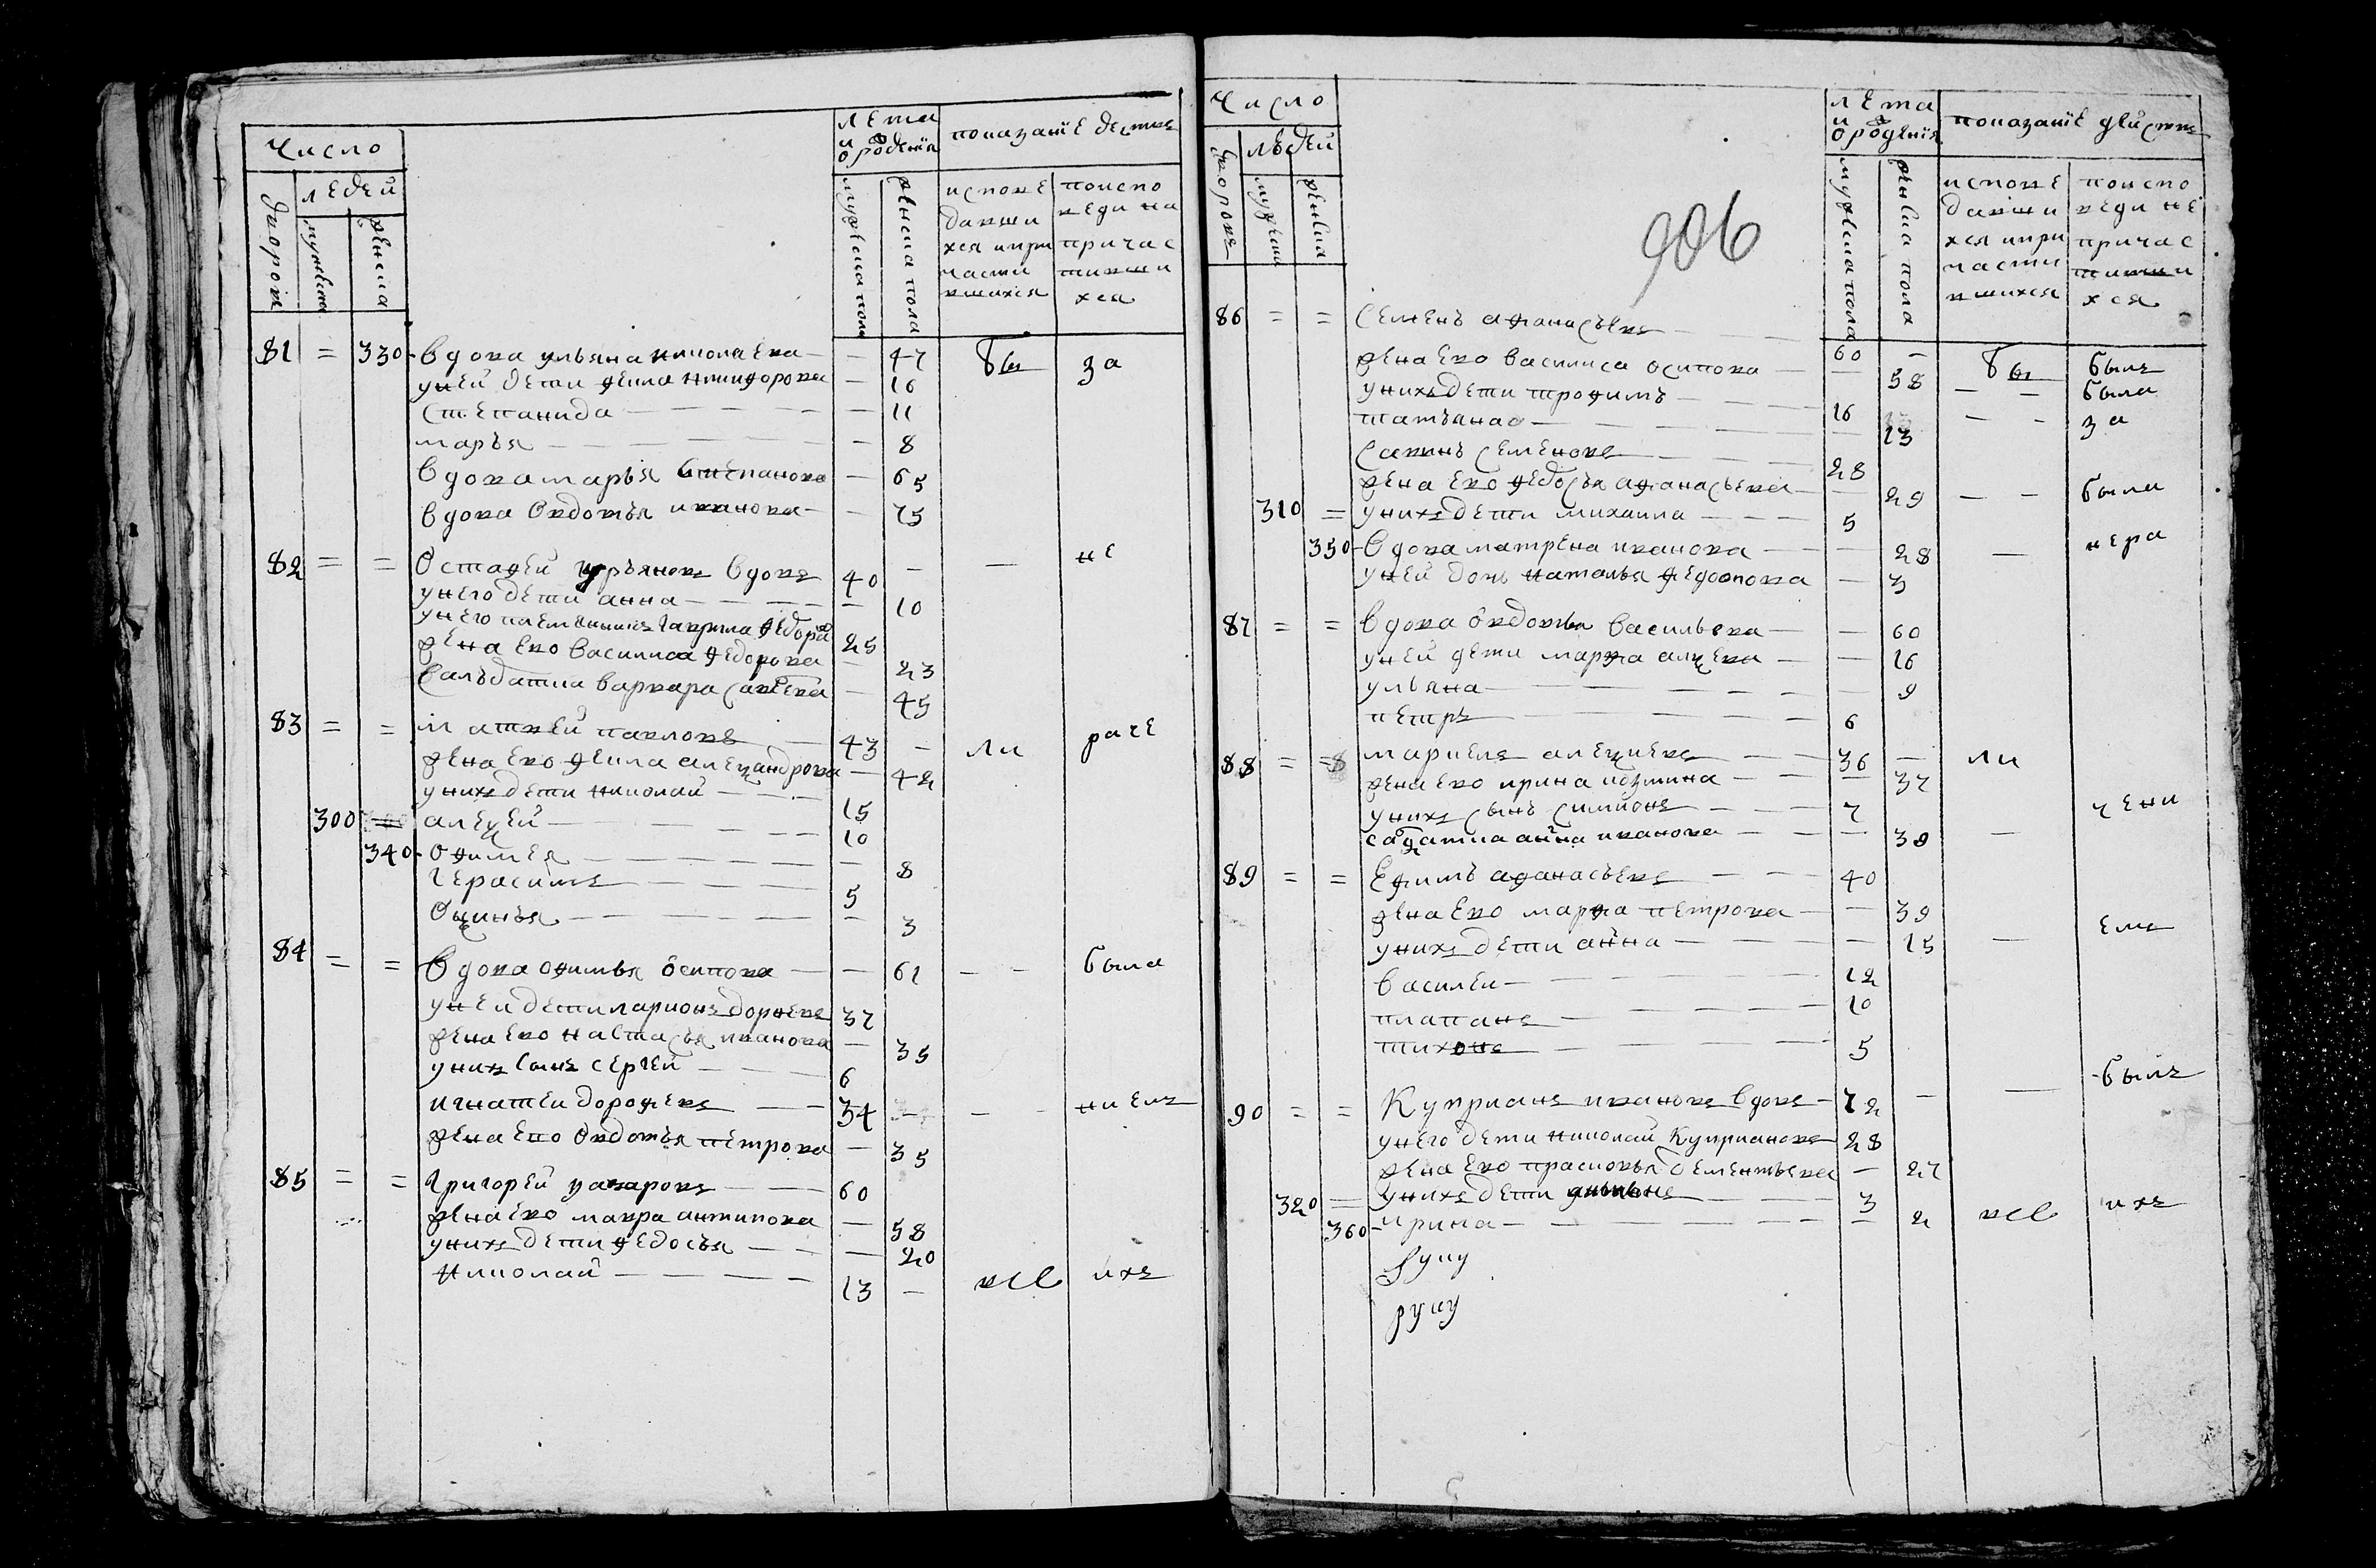 Число
лета и о рождениї
показаниї действ
дворовъ
людей
мужеска
женска
мужеска пола
женска пола
исповедавши хся и причасти вшихся
по исповеди на причас тивши хся
81 = 330 вдова ульяна николаева — 47 бы за
у ней дети фекла никифорова — 16
степанида — 11
марья — 8
вдова марья степанова — 65
вдова овдотья иванова — 75
82 = = Остафей вдовъ 40 — — не
у него дети анна — 10
у него племянникъ гаврила федоров 25
жена ево василиса федорова — 23
салъдатка варвара савева — 45
83 = = Матвей павловъ 43 — ли раче
жена ево фекла александрова — 42
у нихъ дети николай 15
300 алексей 10
340 Офимея — 8
герасимъ 5
Оксинья — 3
84 = = вдова офимья осипова — 61 — — была
у ней дети ларионъ дорофевъ 37
жена ево настасья иванова — 35
у нихъ сынъ сергей 6
игнатей дорофевъ 34 — — ни емъ
жена ево овдотья петрова — 35
85 = = григорей назаровъ 60
жена ево мавра антипова — 58
у нихъ дети федосья — 20
николай 13 — все ихъ
Число
лета и о рождениї
показаниї действ
дворовъ
людей
мужеска
женска
мужеска пола
женска пола
исповедавши хся и причасти вшихся
по исповеди не причас тивши хся
906
86 = = Семенъ афанасьевъ 60 — бы былъ
жена ево василиса осипова — 58 — — была
у нихъ дети трофимъ 16 — — за
татьяна — 13
савинъ семеновъ 28
жена ево федосья афанасьева — 29 — — была
310 = у нихъ дети михаила 5
350 вдова матрена иванова — 28 — вера
у ней дочь наталья федоонова — 3
87 = = вдова овдотья васильева — 60
у ней дети марфа алексева — 16
ульяна — 9
петръ 6
88 = = маркелъ алексиевъ 36 — ли
жена ево ирина козмина — 37
у нихъ сынъ симионъ 7 чени
салдатка анна иванова — 39 —
89 = = Ефимъ афанасьевъ 40
жена ево марфа петрова — 39
у нихъ дети анна — 15 — емъ
василеи 12
платанъ 10
тихонъ 5
90 = = Куприанъ ивановъ вдовъ 72 — — былъ
у него дети николай куприановъ 28
жена ево прасковья дементьева — 27
320 = у нихъ дети 3
360 ирина — 2 все ихъ
руку